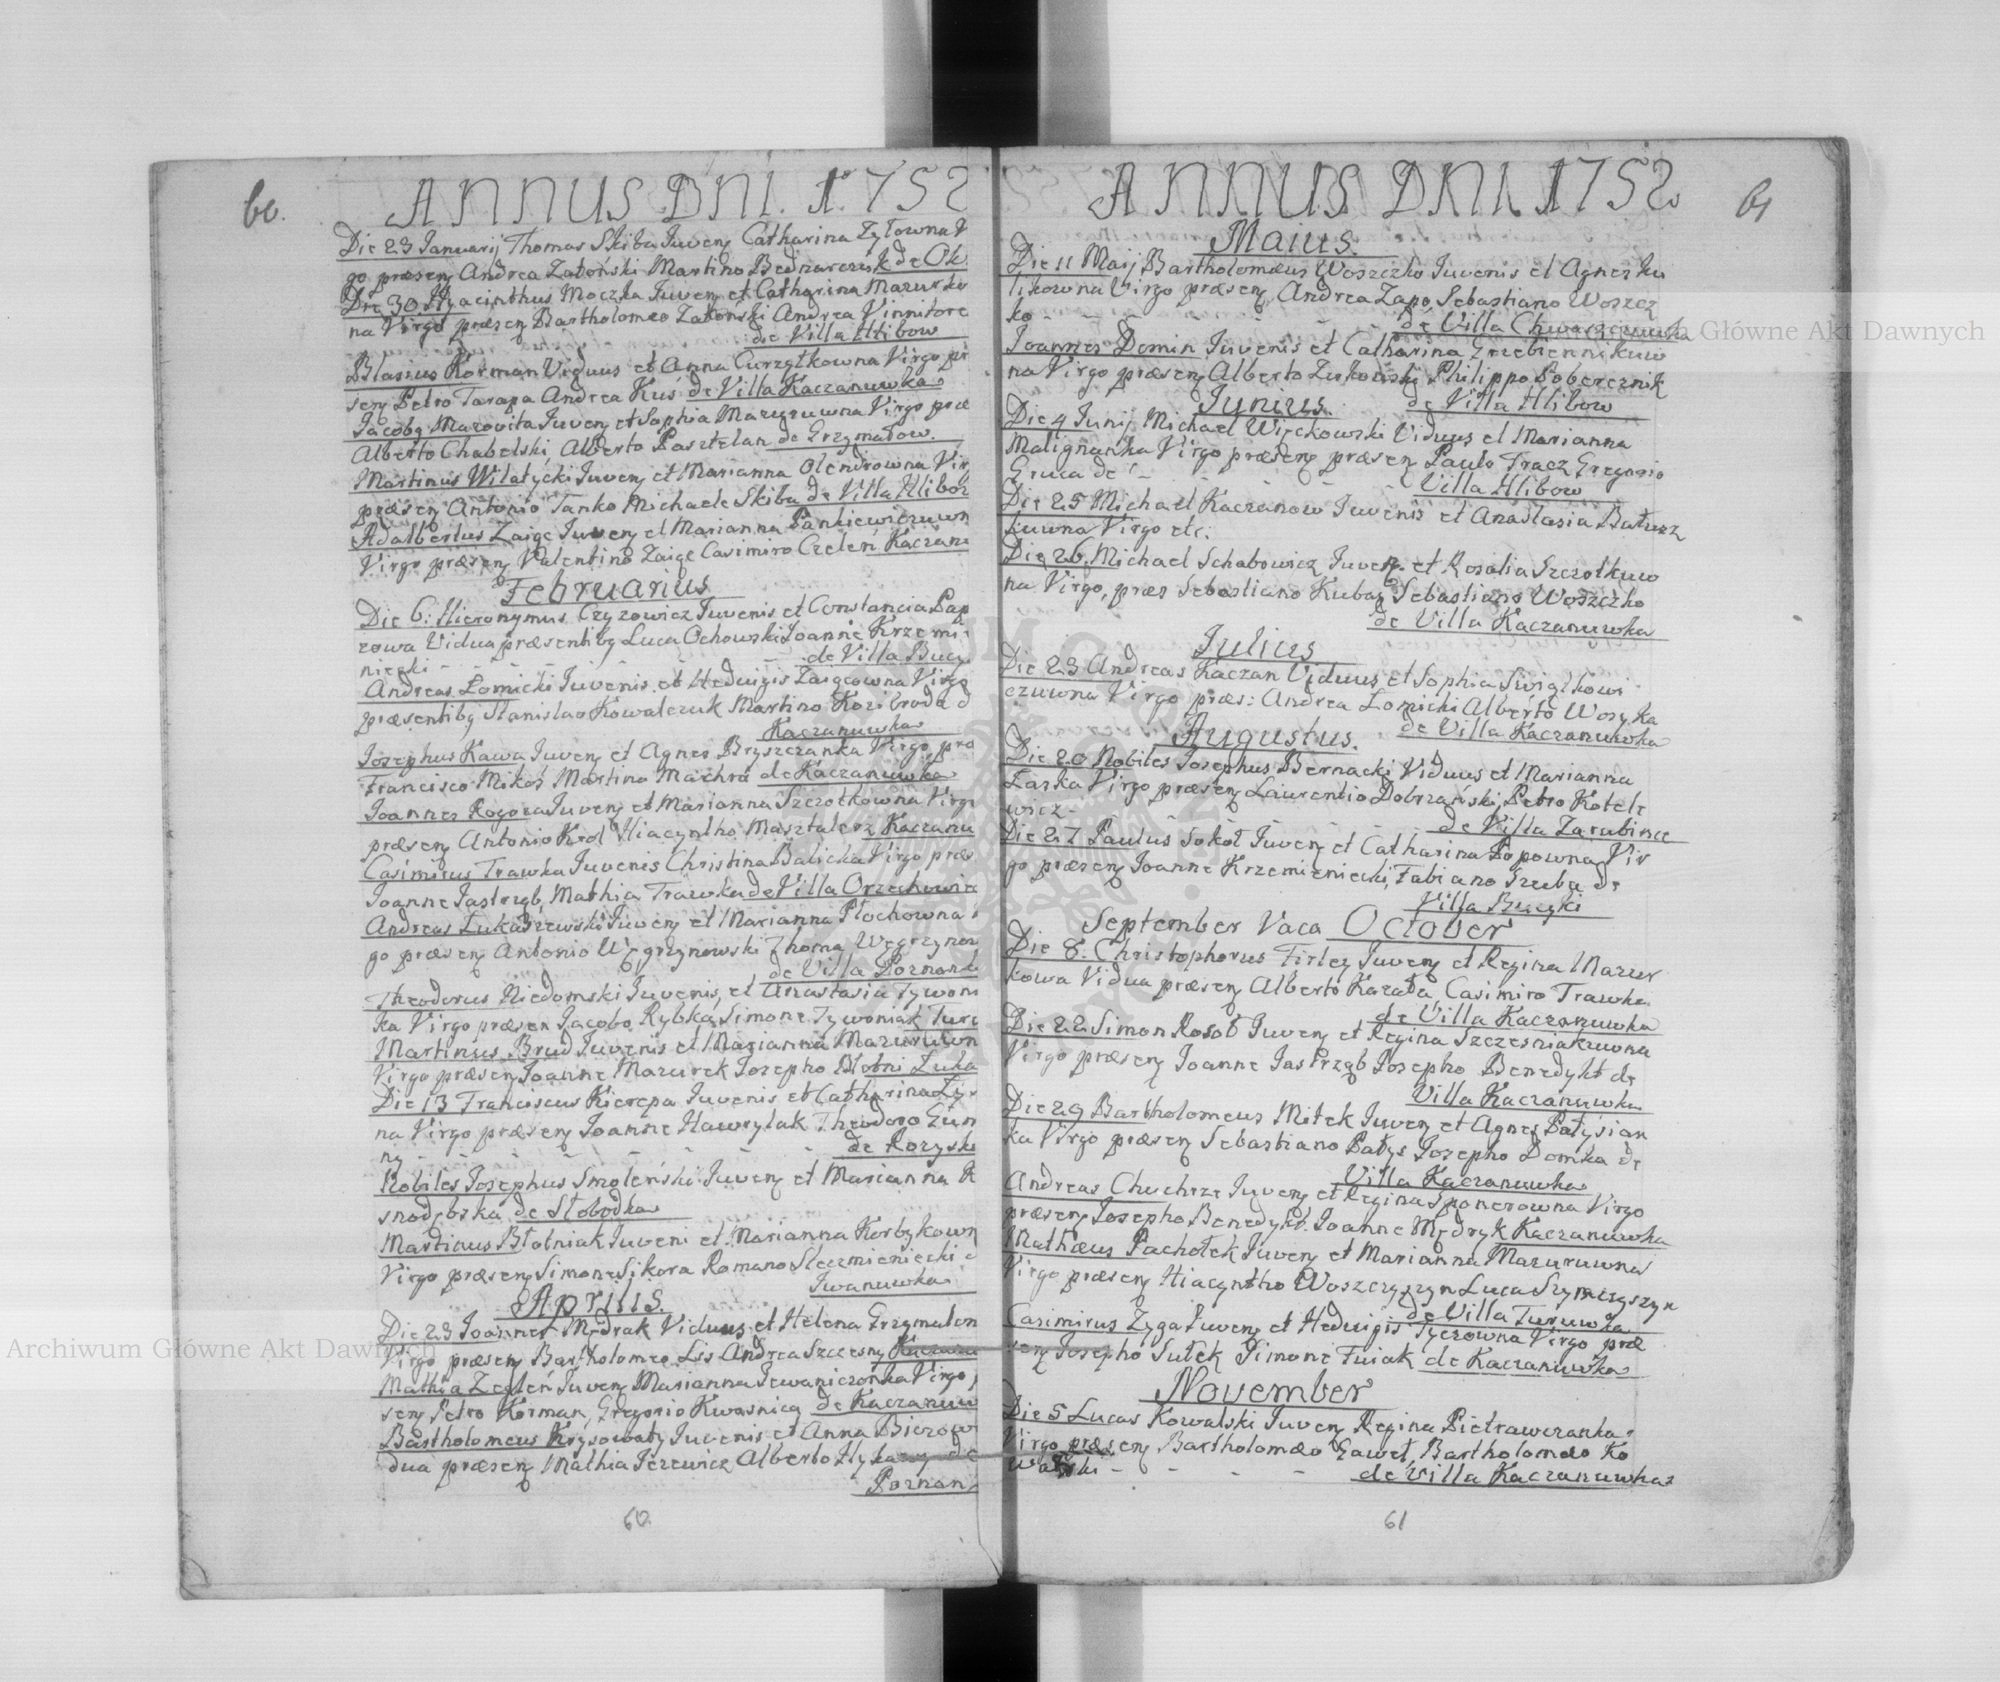 60.
ANNUS DNI. 1752
Die 23 Januarij Thomas Skiba Juveng Catharina Zytowna V
go præseng Andrea Zaboński Martino Bednarczuk de Ok
Die 30 Hyacinthus Moczka Juveng et Catharina Mazurko
na Virgo præseng Bartholomeo Zaboński Andrea Vinnitore
de Villa Hlibow
Blasius Korman Viduus et Anna Curzytkowna Virgo pr
seng Petro Tarapa Andrea Kuś de Villa Kaczanuwka
Jacobg Mazovita Juveng et Sophia Mazuruwna Virgo præ
Alberto Chabelski, Alberto Pasztelan de Grzymałow.
Martinus Wilatycki Juveng et Marianna Olendrowna Vir
præseng Antonio Tanko Michaele Skiba de Villa Hlibow
Adalbertus Zaige Juveng et Marianna Pankiewiczuwn
Virgo præseng Valentino Zaige Casimiro Czeleń Kaczan
Februarius
Die 6. Hieronymus Czyzowicz Juvenis et Constancia Pap
rowa Vidua præsentibg Luca Ochowski Joanne Krzemi-
niecki - - - - de Villa Bucy
Andreas Łomicki Juvenis et Hedwigis Zaigcowna Virgo
præsentibg Stanislao Kowalczuk Martino Kozibroda d
Kaczanuwka
Josephus Kawa Juveng et Agnes Bryszczanka Virgo, præ
Francisco Mikoś Martino Machrá de Kaczanuwka
Joannes Rogoza Juveng et Marianna Szczotkowna Virgo
præseng Antonio Krol Hiacyntho Masztalerz Kaczanu
Casimirus Trawka Juvenis Christina Balicka Virgo præs
Joanne Jastrzgb, Mathia Trawka de Villa Orzechowie
Andreas Łukaszewski Juveng et Marianna Płochowna
go præseng Antonio Węgrzynowski Thoma Węgrzynow
de Villa Poznank
Theodorus Niedomski Juvenis, et Anastasia Tywoni
ka Virgo præsen Jacobo Rybka Simone Tywoniak Turu
Martinus Brud Juvenis et Marianna Mazuruwn
Virgo præseng Joanne Mazurek Josepho Błotni Łuka
Die 13 Franciscus Kierepa Juvenis et Catharina Ły-
na Virgo præseng Joanne Hawrylak Theodoro Gun
ny - - - - - de Rozysk
Nobiles Josephus Smoleński Juveng et Marianna K
snodębska de Słobodka
Martinus Błotniak Juveni et Marianna Korbykown
Virgo præseng Simone Sikora Romano Sleczmieniecki
Iwanuwka
Aprilis.
Die 23 Joannes Mędrak Viduus et Helena Grzymałow
Virgo præseng Bartholomeo Lis Andrea Szczesny Kaczanu
Mathia Zegleń Juveng Marianna Jewaniczonka Virgo,
seng Petro Korman, Gregorio Kwasnica de Kaczanuw
Bartholomeus Krysowaty Juvenis et Anna Bierow
dua præseng Mathia Jerewicz Alberto Hykawy de
Poznan
60.
ANNUS DNI 1752
61
Maius.
Die 11 Maij Bartholomæus Woszczko Juvenis et Agnes Ku
likowna Virgo præseng Andrea Zapo, Sebastiano Woszcz
ko - - - - de Villa Chwaszczuwka
Joannes Domin Juvenis et Catharina Zrzebiennikuw
na Virgo præseng Alberto Zukoński Philippo Pobereznik
Junius. de Villa Hlibow
Die 4 Junij Michael Więckowski Viduus et Marianna
Malignanka Virgo præseng præseng Paulo Tracz Gregorio
Gruca de - - - - Villa Hlibow
Die 25 Michael Kaczanow Juvenis et Anastasia Batusz
kuwna Virgo etc.
Die 26. Michael Schabowicz Juveng. et Rosalia Szczotkuw
na Virgo, præs Sebastiano Kubag Sebastiano Woszczko
de Villa Kaczanuwka
Julius
Die 23 Andreas Kaczan Viduus et Sophia Swigtkowi
czuwna Virgo præs: Andrea Łomicki Alberto Wosyka
Augustus. de Villa Kaczanuwka
Die 20 Nobiles Josephus Bernacki Viduus et Marianna
Zarska Virgo præseng Laurentio Dobrzański, Petro Kotele
wicz - - - - de Villa Zarubince
Die 27 Paulus Sokoł Juveng et Catharina Popowna Vir
go præseng Joanne Krzemieniecki, Fabiano Szuba de
Villa Bucyki
September Vaca October
Die 8. Christophorus Firlez Juveng et Regina Mazur
kowa Vidua præseng Alberto Karata Casimiro Trawka
de Villa Kaczanuwka
Die 22 Simon Rosoł Juveng et Regina Szczesniakuwna
Virgo præseng Joanne Jastrząb Josepho Benedykt de
Villa Kaczanuwka
Die 29 Bartholomeus Mitek Juveng et Agnes Patysian
ka Virgo præseng Sebastiano Patys Josepho Domka de
Villa Kaczanuwka
Andreas Chuchrze Juveng et Regina Sponerowna Virgo
præseng Josepho Benedykt. Joanne Mędryk Kaczanuwka
Mathæus Pachołek Juveng et Marianna Mazuruwna
Virgo præseng Hiacyntho Woszczyszyn Luca Szymczyszyn
de Villa Turuwka
Casimirus Zyga Juveng et Hedwigis Tyczowna Virgo præ
seng Josepho Sutek Simone Fuiak de Kaczanuwka
November
Die 5 Lucas Kowalski Juveng Regina Pietraweranka
Virgo præseng Bartholomæo Gaweł, Bartholomæo Ko
walski - - - - de Villa Kaczanuwka
61
Archiwum Główne Akt Dawnych
Archiwum Główne Akt Dawnych